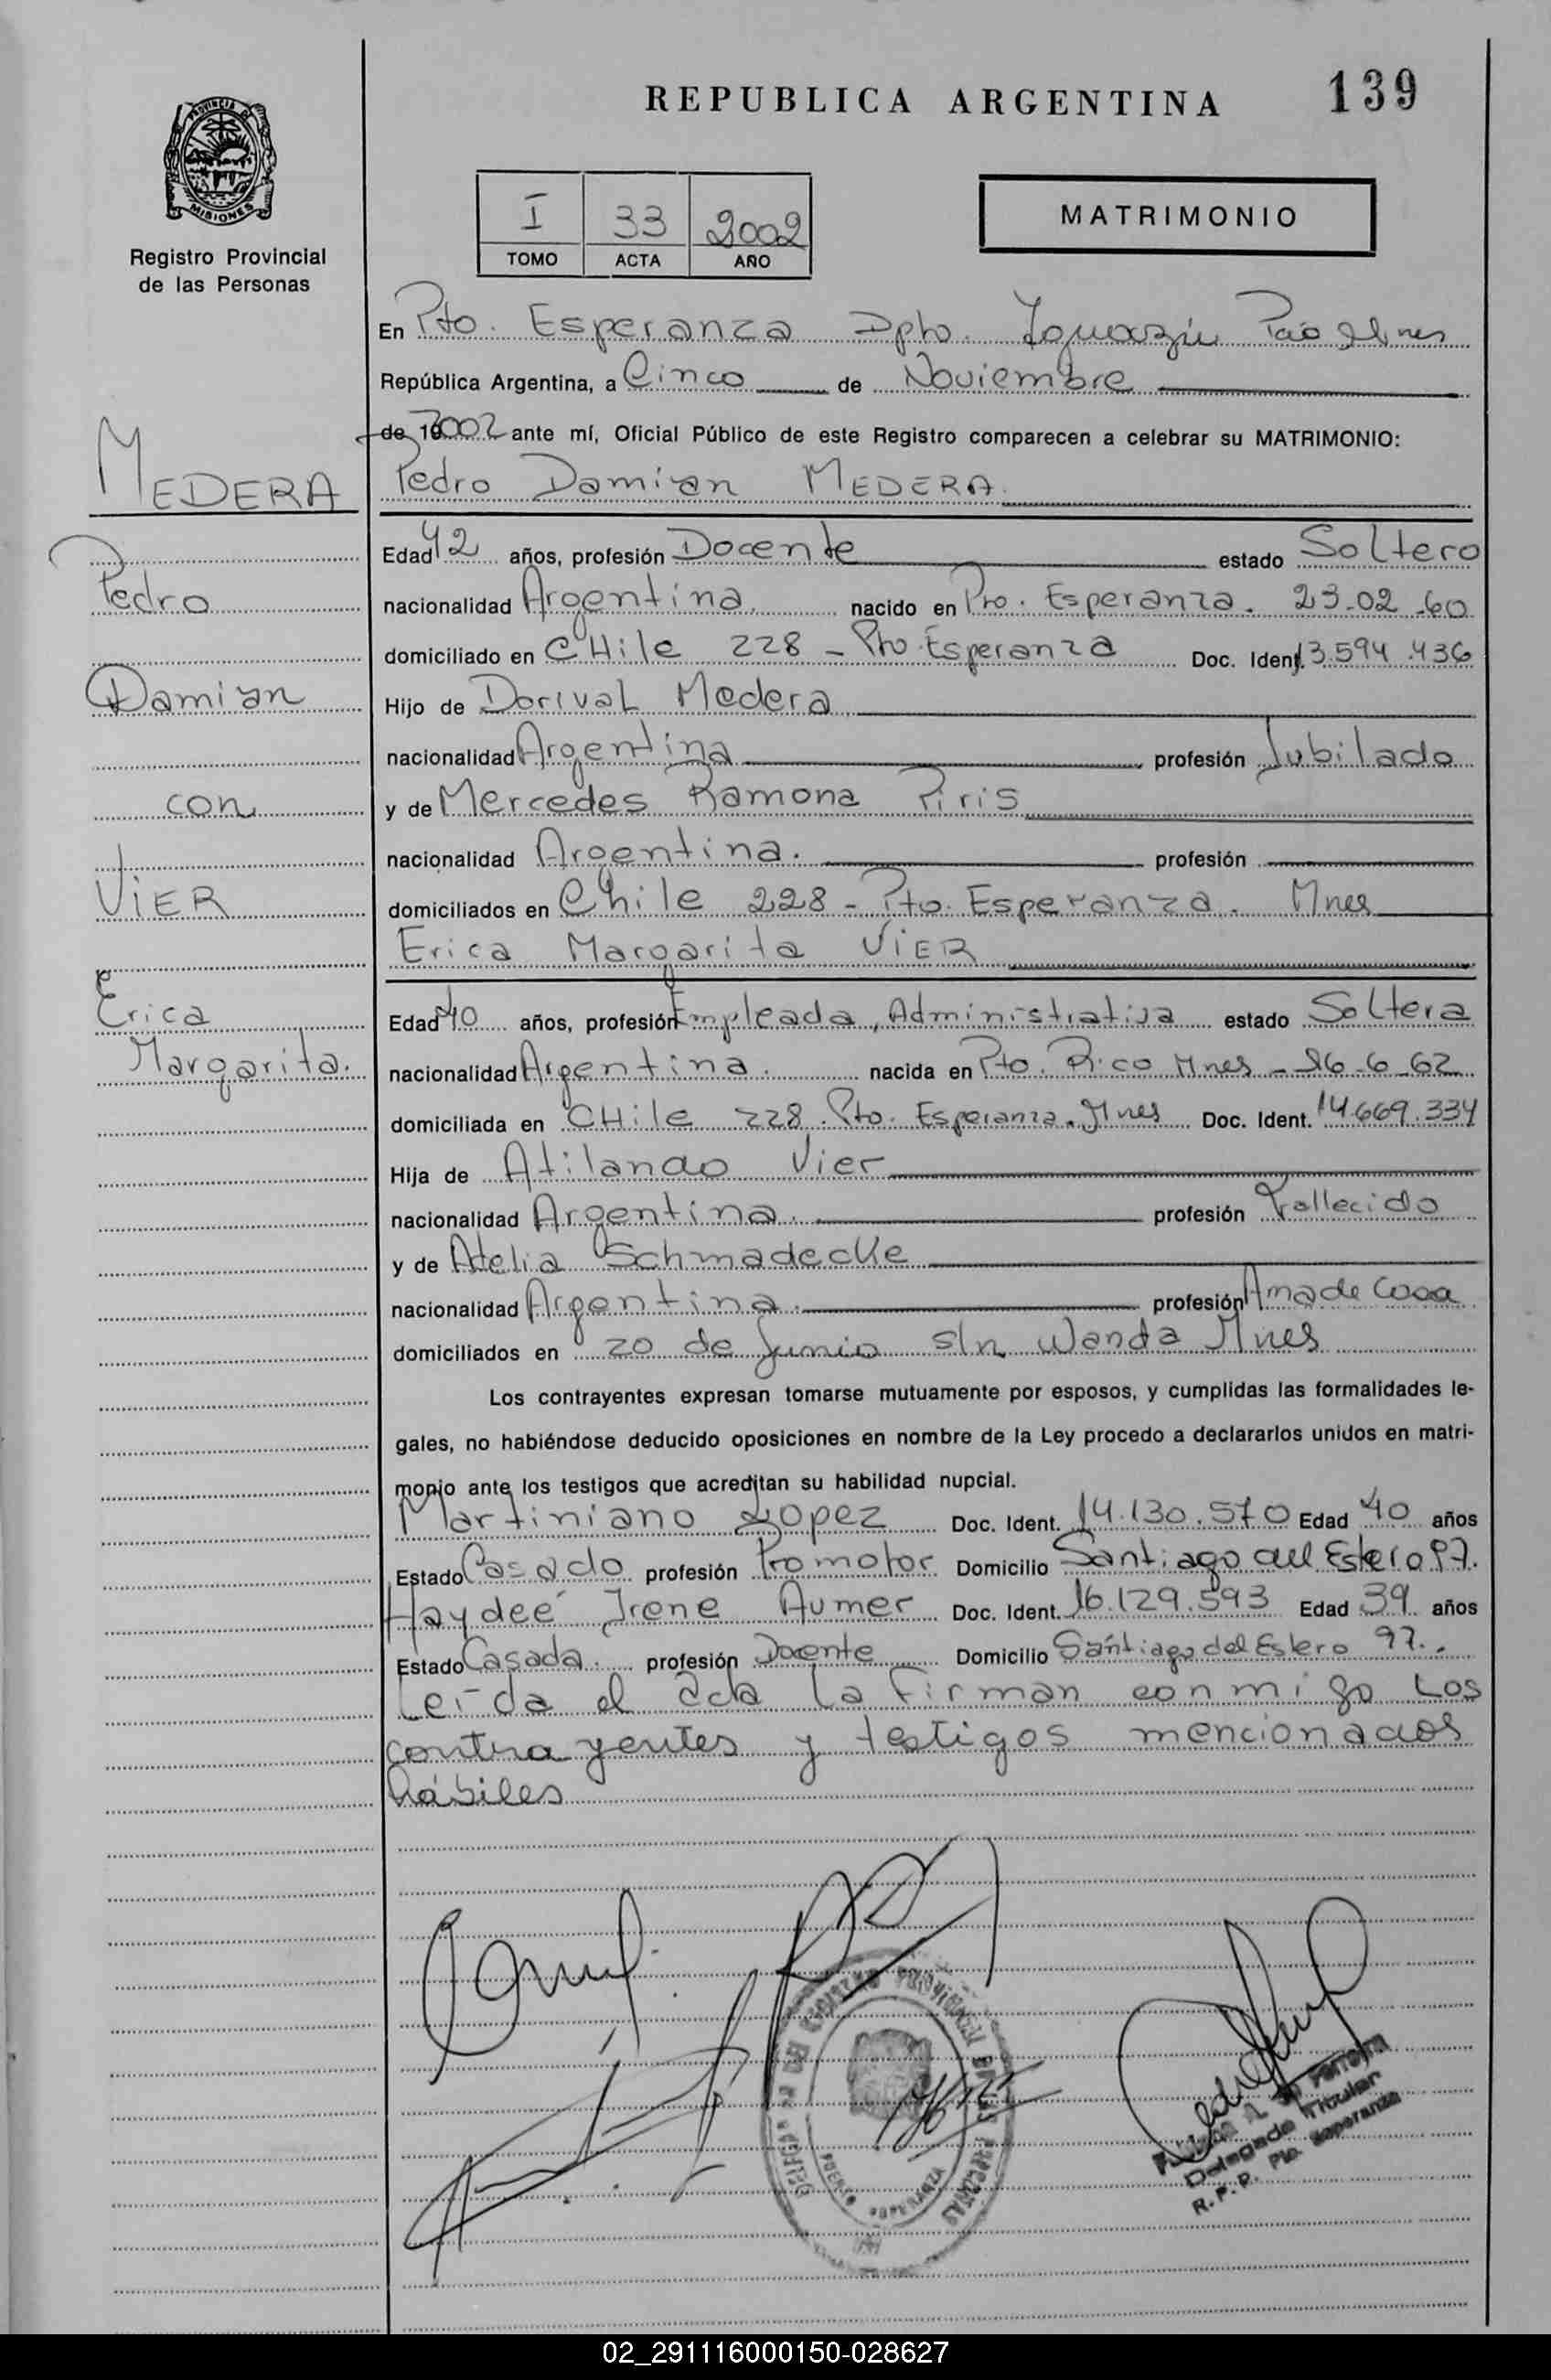 REPUBLICA ARGENTINA
139
PROVINCIA DE
MISIONES
Registro Provincial
de las Personas
I 33 2002
TOMO ACTA AÑO
MATRIMONIO
En Pto. Esperanza Dpto. Iguazú Pcia Mnes
República Argentina, a Cinco de Noviembre
de 2002 ante mí, Oficial Público de este Registro comparecen a celebrar su MATRIMONIO:
Pedro Damian MEDERA
MEDERA
Pedro
Damian
con
VIER
Erica
Margarita.
Edad 42 años, profesión Docente estado Soltero
nacionalidad Argentina nacido en Pto. Esperanza. 23-02-60
domiciliado en CHile 228 - Pto Esperanza Doc. Ident. 13.594.436
Hijo de Dorival Medera
nacionalidad Argentina profesión Jubilado
y de Mercedes Ramona Piris
nacionalidad Argentina. profesión
domiciliados en Chile 228 - Pto. Esperanza. Mnes
Erica Margarita VIER
Edad 40 años, profesión Empleada, Administrativa estado Soltera
nacionalidad Argentina. nacida en Pto. Rico Mnes - 16-6-62
domiciliada en CHile 228. Pto. Esperanza. Mnes Doc. Ident. 14.669.334
Hija de Atilando Vier
nacionalidad Argentina. profesión Fallecido
y de Atelia Schmadecke
nacionalidad Argentina. profesión Ama de Casa
domiciliados en 20 de Junio s/n Wanda Mnes
Los contrayentes expresan tomarse mutuamente por esposos, y cumplidas las formalidades le-
gales, no habiéndose deducido oposiciones en nombre de la Ley procedo a declararlos unidos en matri-
monio ante los testigos que acreditan su habilidad nupcial.
Martiniano Lopez Doc. Ident. 14.130.570 Edad 40 años
Estado Casado profesión Promotor Domicilio Santiago del Estero 97.
Haydeé Irene Aumer Doc. Ident. 16.129.593 Edad 39 años
Estado Casada. profesión Docente Domicilio Santiago del Estero 97..
Leída el acta la firman conmigo Los
contrayentes y testigos mencionados
hábiles
Delegado Titular
R. P. P. Pto. Esperanza
02_291116000150-028627